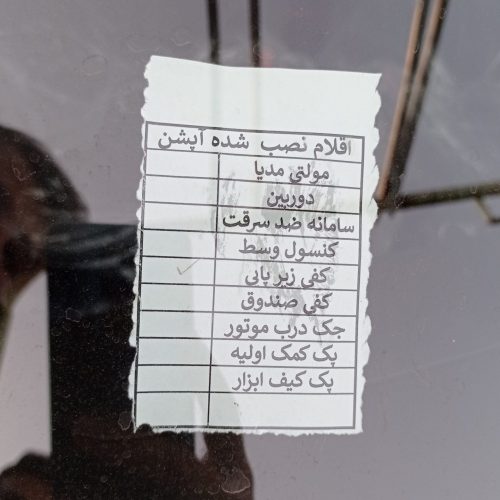 اقلام نصب شده آپشن
مولتی مدیا
دوربین
سامانه ضد سرقت
کنسول وسط
کفی زیر پایی
کفی صندوق
جک درب موتور
پک کمک اولیه
پک کیف ابزار